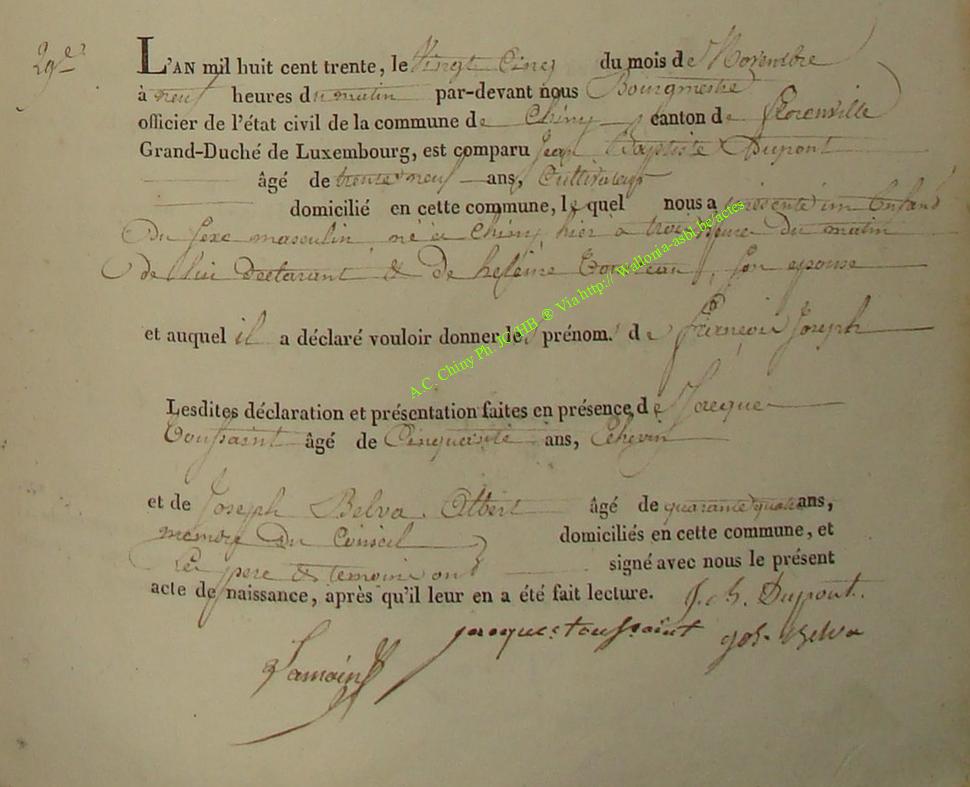 29e
L'AN mil huit cent trente, le Vingt Cinq du mois de Novembre
à neuf heures du matin par-devant nous Bourgmestre
officier de l'état civil de la commune de Chiny canton de Florenville
Grand-Duché de Luxembourg, est comparu Jean Baptiste Dupont
âgé de trente neuf ans, Cultivateur
domicilié en cette commune, le quel nous a présenté un Enfant
Du sexe masculin, né à Chiny hier à trois heure Du matin
de lui Declarant & De heleine , son epouse
et auquel il a déclaré vouloir donner les prénoms de François Joseph
Lesdites déclaration et présentation faites en présence de Jacque
Toussaint âgé de Cinquante ans, Echevin
et de Joseph Belva Albert âgé de quarante quatre ans,
membre Du Conseil domiciliés en cette commune, et
Les pere & temoins ont signé avec nous le présent
acte de naissance, après qu'il leur en a été fait lecture. J. b. Dupont.
jacques toussaint jos. Belva
Lamoin
A.C. Chiny Ph. JC HB ® Via http:// Wallonia-asbl.be/actes